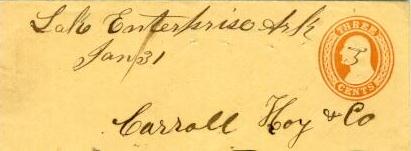 Lak Enterprise Ark
Jan 31
THREE
3
CENTS
Carroll Hoy & Co